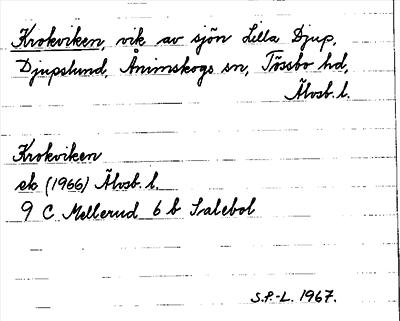 Krokviken, vik av sjön Lilla Djup,
Djupslund, Ånimskogs sn, Tössbo hd,
Älvsb. l.
Krokviken
ek (1966) Älvsb. l.
9 C Mellerud 6 b Salebol
S.P.-L. 1967.